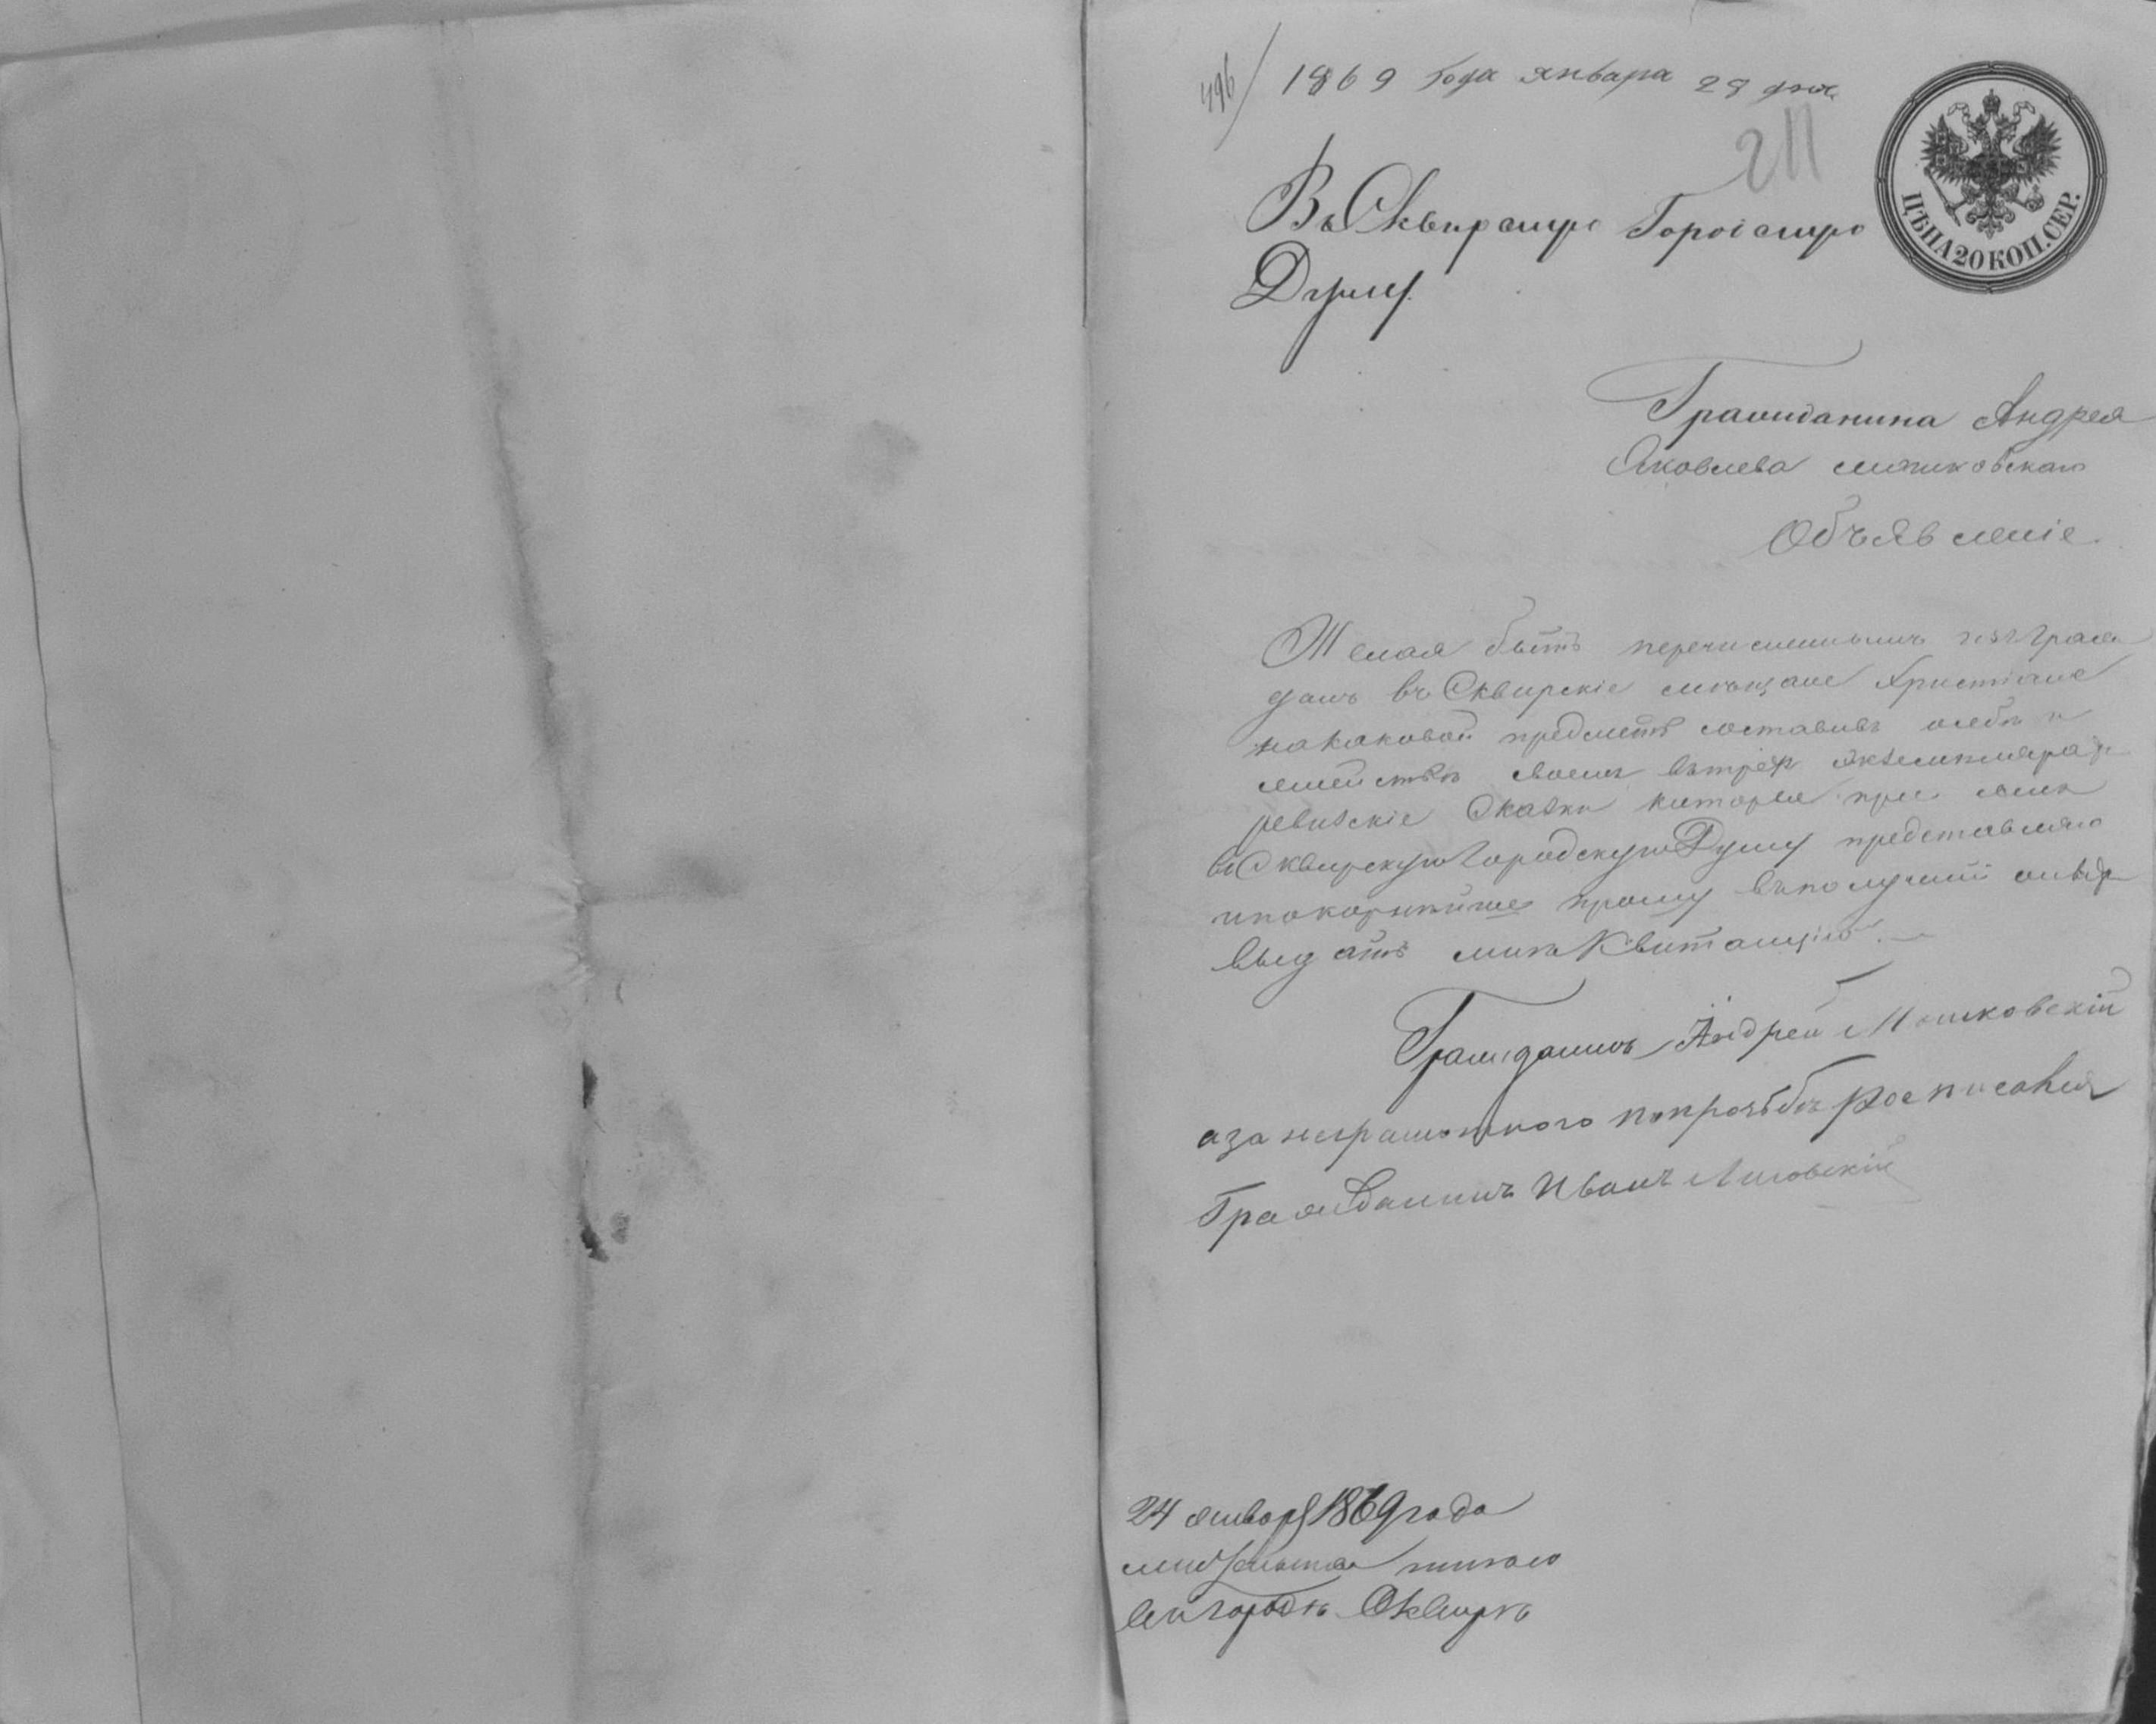 496/ 1869 года января 28 дня
211
ЦѢНА 20 КОП. СЕР.
Въ Сквирскую Городскую
Думу.
Гражданина Андрея
Яковлева
Объявленіе.
Желая быть перечисленнымъ изъ Граж
данъ въ Сквирскіе мѣщане Христіане
на каковой предметъ составивъ о себѣ и
семействѣ своемъ въ трех экземплярах
ревизскіе Сказки которыя при семъ
въ Сквирскую Городскую Думу представляю
и покорнѣйше прошу въ полученіи оных
выдать мнѣ Квитанцію. —
Гражданинъ Андрей
а за неграмотного по прозьбѣ росписался
Гражданинъ Иванъ Лисовскій
24 января 1869 года
жительство имѣю
въ городѣ Сквирѣ